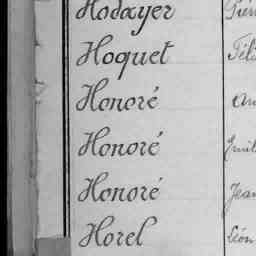 Hodayer
Hoquet Féli
Honoré
Honoré Emil
Honoré Jean
Horel Léon